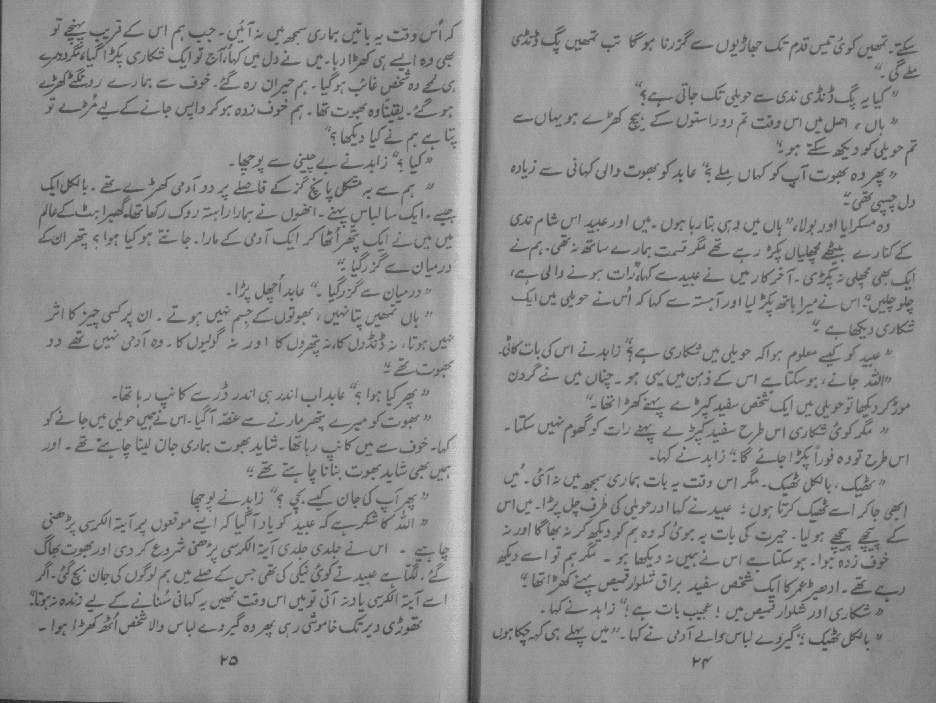 سکتے۔ تمھیں کوئی تیس قدم تک جھاڑیوں سے گزرنا ہوگا تب تمھیں پگ ڈنڈی
ملے گی۔"
"کیا یہ پگ ڈنڈی ندی سے حویلی تک جاتی ہے؟"
"ہاں، اصل میں اس وقت تم دو راستوں کے بیچ کھڑے ہو یہاں سے
تم حویلی کو دیکھ سکتے ہو۔"
"پھر وہ بھوت آپ کو کہاں ملے؟" عابد کو بھوت والی کہانی سے زیادہ
دل چسپی تھی۔
وہ مسکرایا اور بولا، "ہاں میں وہی بتا رہا ہوں۔ میں اور عبید اس شام ندی
کے کنارے بیٹھے مچھلیاں پکڑ رہے تھے مگر قسمت ہمارے ساتھ نہ تھی۔ ہم نے
ایک بھی مچھلی نہ پکڑی۔ آخر کار میں نے عبید سے کہا، "رات ہونے والی ہے،
چلو چلیں" اس نے میرا ہاتھ پکڑ لیا اور آہستہ سے کہا کہ اُس نے حویلی میں ایک
شکاری دیکھا ہے۔"
"عبید کو کیسے معلوم ہوا کہ حویلی میں شکاری ہے؟" زاہد نے اس کی بات کاٹی۔
"اللہ جانے، ہو سکتا ہے اس کے ذہن میں یہی ہو۔ چناں میں نے گردن
موڑ کر دیکھا تو حویلی میں ایک شخص سفید کپڑے پہنے کھڑا تھا۔"
"مگر کوئی شکاری اس طرح سفید کپڑے پہنے رات کو گھوم نہیں سکتا۔
اس طرح تو وہ فوراً پکڑا جائے گا۔" زاہد نے کہا۔
"ٹھیک، بالکل ٹھیک۔ مگر اس وقت یہ بات ہماری سمجھ میں نہ آئی۔ "میں
ابھی جا کر اسے ٹھیک کرتا ہوں،" عبید نے کہا اور حویلی کی طرف چل پڑا۔ میں اس
کے پیچھے پیچھے ہو لیا۔ حیرت کی بات یہ ہوئی کہ وہ ہم کو دیکھ کر نہ بھاگا اور نہ
خوف زدہ ہوا۔ ہو سکتا ہے اس نے ہمیں نہ دیکھا ہو۔ مگر ہم تو اسے دیکھ
رہے تھے۔ ادھیڑ عمر کا ایک شخص سفید براق شلوار قمیص پہنے کھڑا تھا۔"
"شکاری اور شلوار قمیص میں! عجیب بات ہے!" زاہد نے کہا۔
"بالکل ٹھیک،" گیروے لباس والے آدمی نے کہا۔ "میں پہلے ہی کہہ چکا ہوں
۲۴
کہ اُس وقت یہ باتیں ہماری سمجھ میں نہ آئیں۔ جب ہم اس کے قریب پہنچے تو
بھی وہ ایسے ہی کھڑا رہا۔ میں نے دل میں کہا، آج تو ایک شکاری پکڑا گیا، مگر دوسرے
ہی لمحے وہ شخص غائب ہو گیا۔ ہم حیران رہ گئے۔ خوف سے ہمارے رونگٹے کھڑے
ہو گئے۔ یقیناً وہ بھوت تھا۔ ہم خوف زدہ ہو کر واپس جانے کے لیے مُڑے تو
پتا ہے ہم نے کیا دیکھا؟"
"کیا؟" زاہد نے بے چینی سے پوچھا۔
"ہم سے بہ مشکل پانچ گز کے فاصلے پر دو آدمی کھڑے تھے۔ بالکل ایک
جیسے۔ ایک سا لباس پہنے۔ انھوں نے ہمارا راستہ روک رکھا تھا۔ گھبراہٹ کے عالم
میں میں نے ایک پتھر اُٹھا کر ایک آدمی کے مارا۔ جانتے ہو کیا ہوا؟ پتھر ان کے
درمیان سے گزر گیا۔"
"درمیان سے گزر گیا۔" عابد اُچھل پڑا۔
"ہاں تمھیں پتا نہیں، بھوتوں کے جسم نہیں ہوتے۔ ان پر کسی چیز کا اثر
نہیں ہوتا، نہ ڈنڈوں کا، نہ پتھروں کا اور نہ گولیوں کا۔ وہ آدمی نہیں تھے دو
بھوت تھے۔"
"پھر کیا ہوا؟" عابد اب اندر ہی اندر ڈر سے کانپ رہا تھا۔
"بھوت کو میرے پتھر مارنے سے غصّہ آ گیا۔ اس نے ہمیں حویلی میں جانے کو
کہا۔ خوف سے میں کانپ رہا تھا۔ شاید بھوت ہماری جان لینا چاہتے تھے۔ اور
ہمیں بھی شاید بھوت بنانا چاہتے تھے۔"
"پھر آپ کی جان کیسے بچی؟" زاہد نے پوچھا
"اللہ کا شکر ہے کہ عبید کو یاد آ گیا کہ ایسے موقعوں پر آیتہ الکرسی پڑھنی
چاہیے۔ اس نے جلدی جلدی آیتہ الکرسی پڑھنی شروع کر دی اور بھوت بھاگ
گئے۔ لگتا ہے عبید نے کوئی نیکی کی تھی جس کے صلے میں ہم لوگوں کی جان بچ گئی۔ اگر
اسے آیتہ الکرسی یاد نہ آتی تو میں اس وقت تمھیں یہ کہانی سُنانے کے لیے زندہ نہ ہوتا۔"
تھوڑی دیر تک خاموشی رہی پھر وہ گیروے لباس والا شخص اُٹھ کھڑا ہوا۔
۲۵